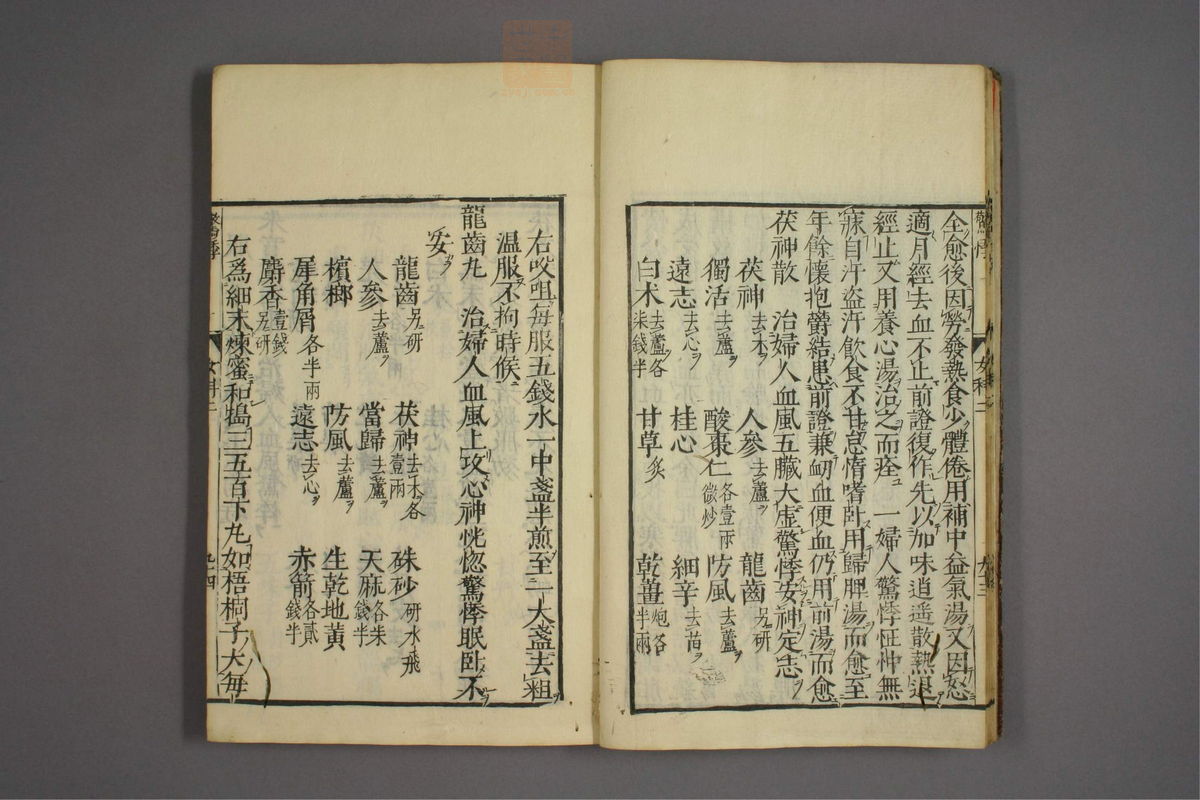 全愈後因勞發熱食少體倦用補中益氣湯又因怒
適月經去血不止前證復作先以加味逍遥散熱退
經止又用養心湯治之而痊 一婦人驚悸怔忡無
寐自汗盗汗飲食不甘怠惰嗜卧用歸脾湯而愈至
年餘懷抱欝結患前證兼衂血便血仍用前湯而愈
茯神散 治婦人血風五臓大虚驚悸安神定志
茯神去木 人參去蘆 龍齒另研
獨活去蘆 酸棗仁各壹兩微炒 防風去蘆
遠志去心 桂心 細辛去苗
白术去蘆各柒錢半 甘草炙 乾薑炮各半兩
右㕮咀每服五錢水一中盞半煎至一大盞去粗
温服不拘時候
龍齒丸 治婦人血風上攻心神恍惚驚悸眠卧不
安
龍齒另研 茯神去木各壹兩 硃砂研水飛
人參去蘆 當歸去蘆 天麻各柒錢半
檳榔 防風去蘆 生乾地黄
犀角屑各半兩 遠志去心 赤箭各貳錢半
麝香壹錢另研
右爲細末煉蜜和搗三五百下丸如梧桐子大每
女科二
九三
九四